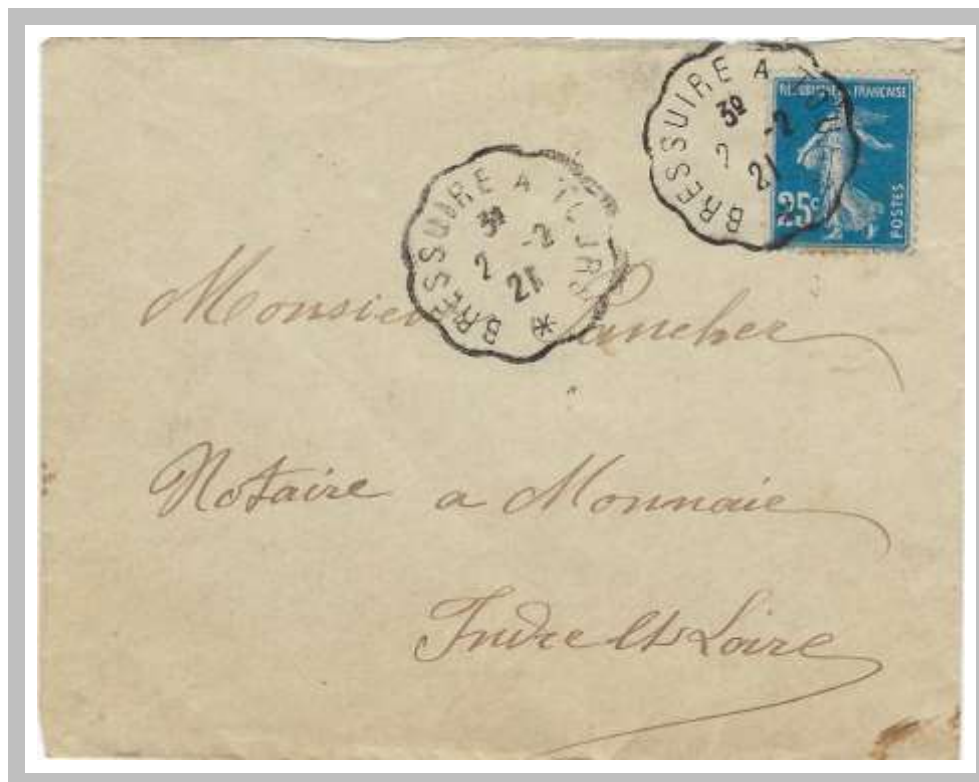 BRESSUIRE A
3º
2 -2
21
REPUBLIQUE FRANCAISE
25c
POSTES
BRESSUIRE A TOURS
3º
2 -2
21
*
Monsieur
Notaire a Monnaie
Indre et Loire